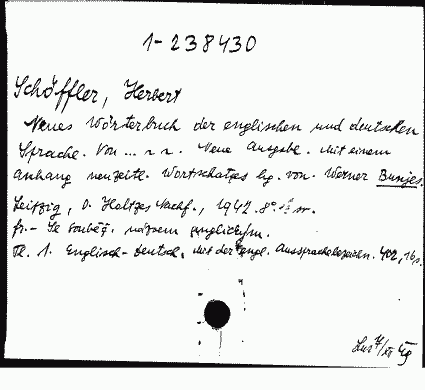 1-238430
Schöffler, Herbert
Neues Wörterbuch der englischen und deutschen
Sprache. Von ... Neue Ausgabe. Mit einem
Anhang neuzeitl. Wortschatzes hg. von Werner Bunjes.
Leipzig, O. Holtzes Nachf., 1942. 8°.
Tl. 1. Englisch-Deutsch, mit der engl. Aussprachebezeichn. 402, 16 s.